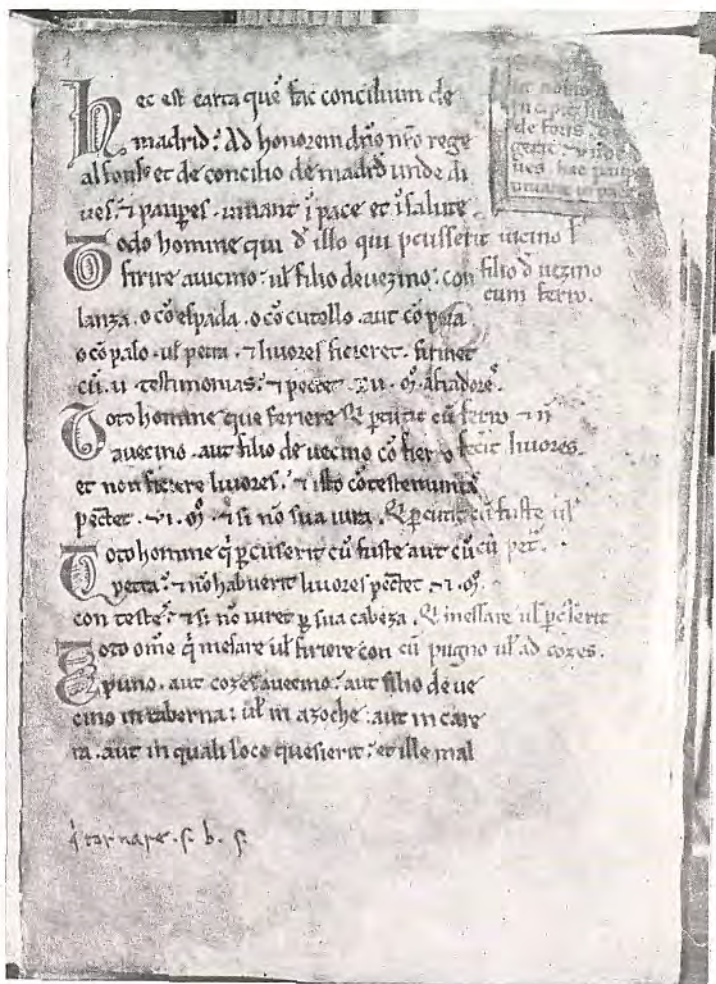 hec est carta que fac concilium de
madrid. Ad honorem dño nr̃o rege
alfonsꝰ et de concilio de madrid unde di
ues. ⁊ paup̃es. uiuant ĩ pace et ĩ salute.
Todo homine qui đ illo qui pcusserit uicino ł
firire auicino. uł filio de uezino. con filio đ uezino
cum ferro.
lanza. o cõ espada. o cõ cutello. aut cõ pora
o cõ palo. uł petra. ⁊ liuores ficieret. firmet
cũ. ii testimonias. ⁊ pectet. xv. m̃. afiadores̃.
Toto homine que feriere Qi p̱cutit cũ ferro ⁊ ñ
auecino. aut filio de uecino cõ fierro fecit liuores.
et non ficiere liuores. ⁊ isto cõ testemunias
pectet. vi. m̃. ⁊ si nõ sua iura. Qi p̱cutit cũ fuste uł
Toto homine q̃ p̱cuserit cũ fuste aut cũ cũ pet̃.
petra. ⁊ nõ habuerit liuores pectet. vi. m̃.
con testes̃. ⁊ si nõ iuret p̱ sua cabeza. Qi messare uł p̱cserit
Toto omẽ q̃ mesare uł firiere con cũ pugno uł ad cozes.
puno. aut cozes auecino. aut filio de ue
cino in taberna. uł in azoche. aut in care
ra. aut in quali loco quesierit. et ille mal
q̃ tornare. s. b. s.